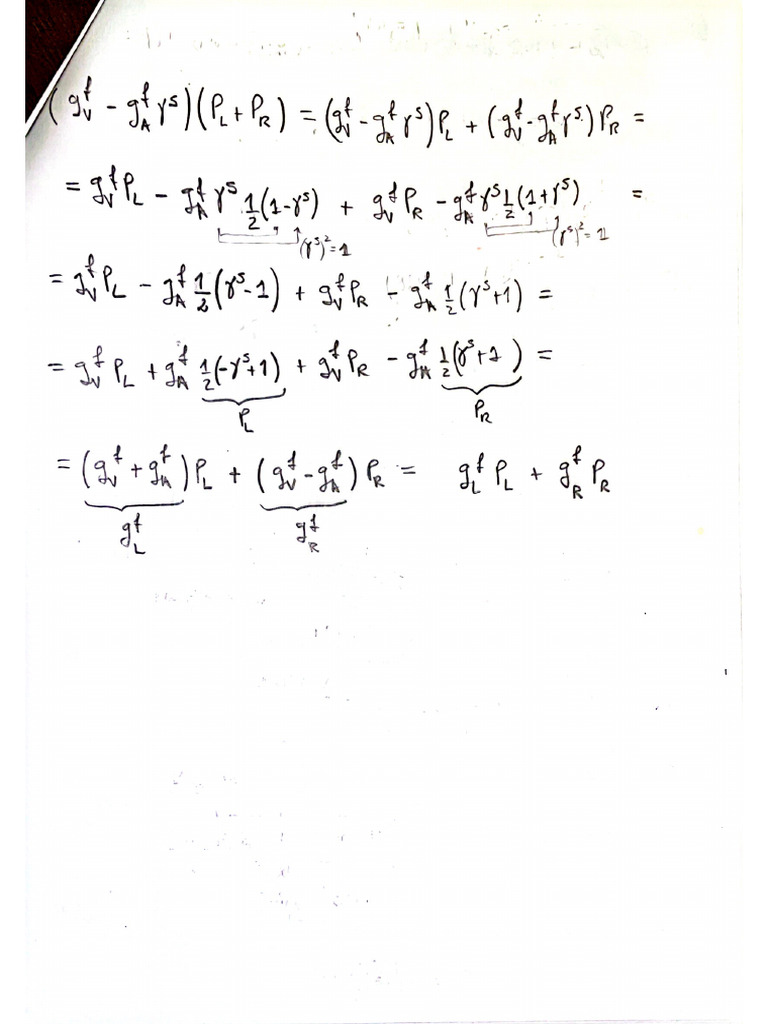 (g_V^f - g_A^f γ^5)(P_L + P_R) = (g_V^f - g_A^f γ^5)P_L + (g_V^f - g_A^f γ^5)P_R =
= g_V^f P_L - g_A^f γ^5 1/2 (1-γ^5) + g_V^f P_R - g_A^f γ^5 1/2 (1+γ^5) =
(γ^5)^2 = 1 (γ^5)^2 = 1
= g_V^f P_L - g_A^f 1/2 (γ^5 - 1) + g_V^f P_R - g_A^f 1/2 (γ^5 + 1) =
= g_V^f P_L + g_A^f 1/2 (-γ^5 + 1) + g_V^f P_R - g_A^f 1/2 (γ^5 + 1) =
P_L P_R
= (g_V^f + g_A^f)P_L + (g_V^f - g_A^f)P_R = g_L^f P_L + g_R^f P_R
g_L^f g_R^f